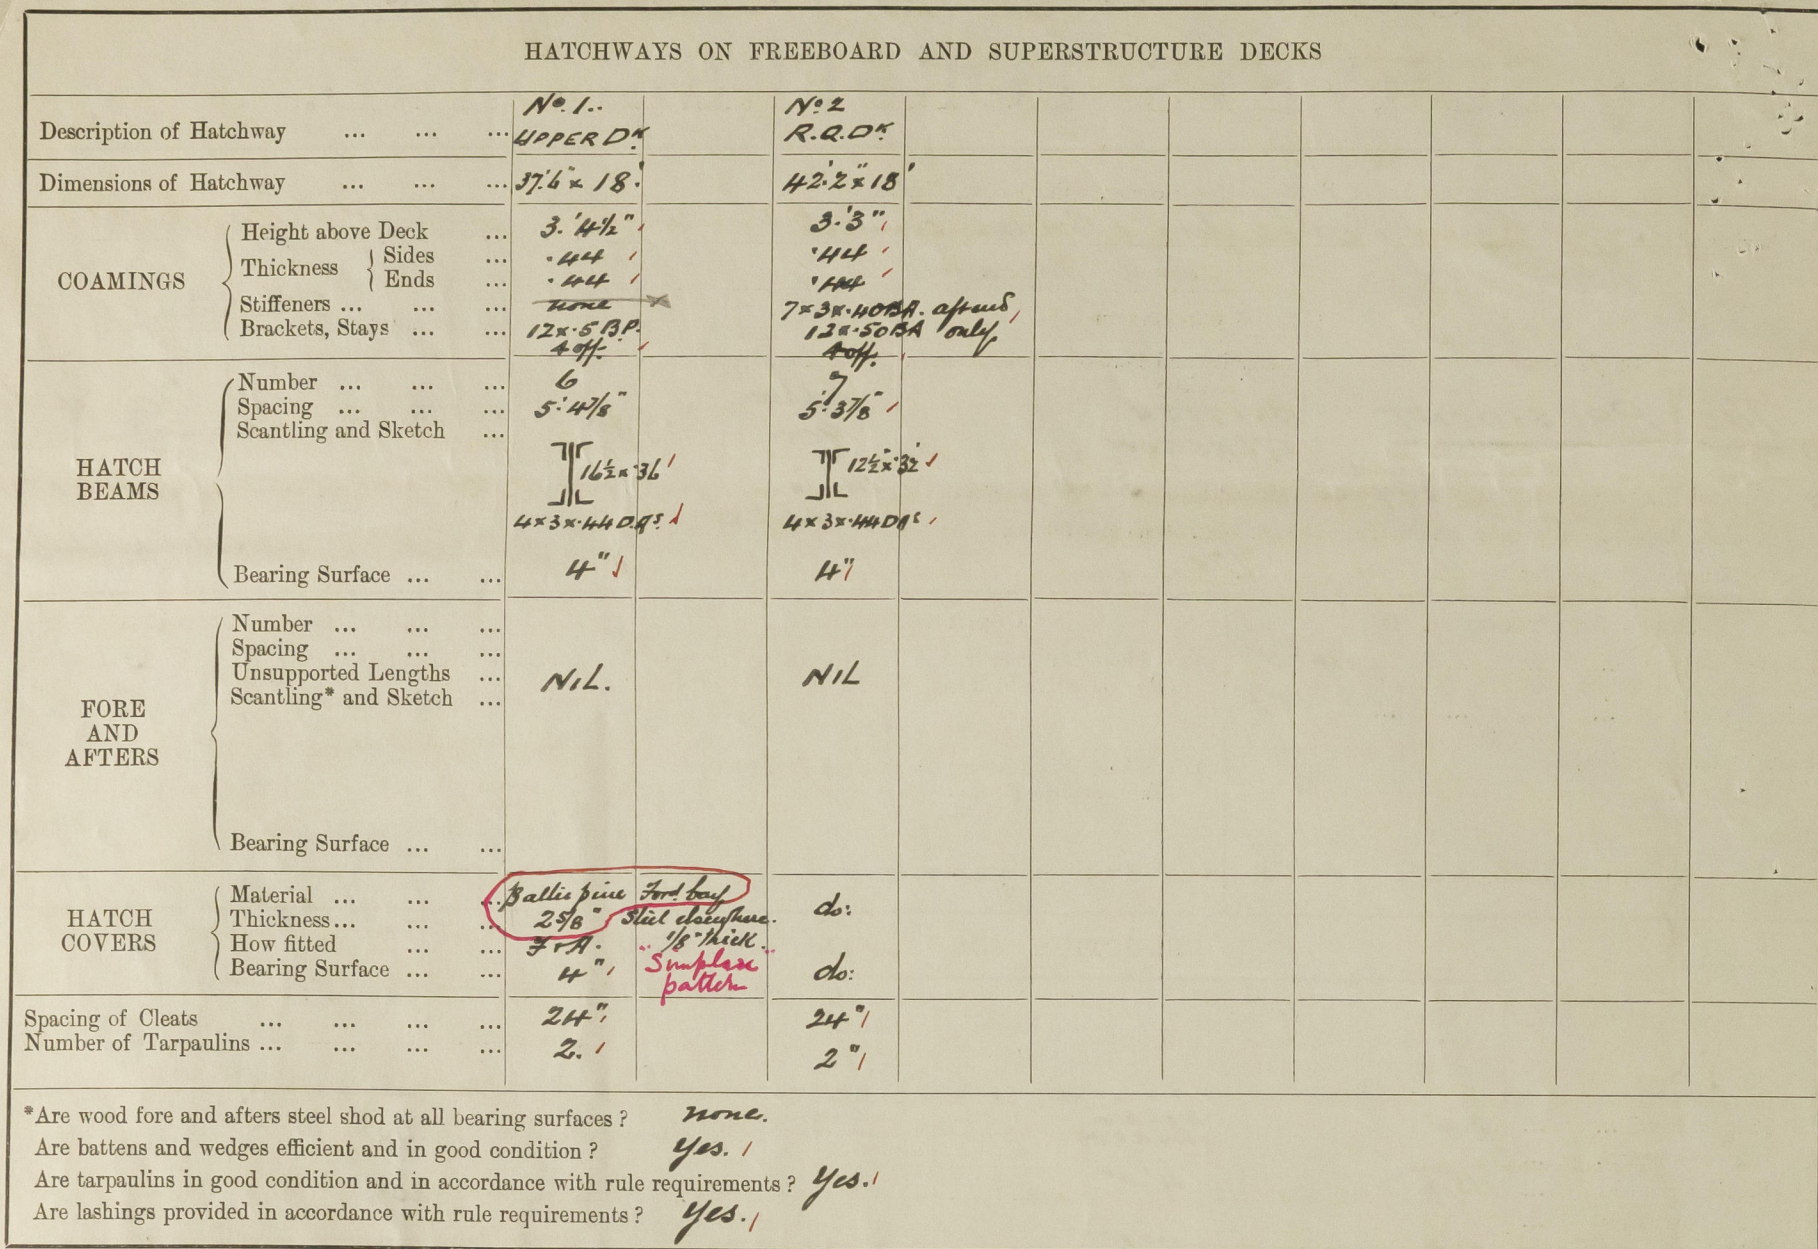 HATCHWAYS ON FREEBOARD AND SUPERSTRUCTURE DECKS
Nº. 1.. Nº 2
Description of Hatchway ... ... ... UPPER DK. R.Q.DK.
Dimensions of Hatchway ... ... ... 37'.6" x 18.' 42'.2" x 18'
COAMINGS
Height above Deck ... 3.'4½" 3.'3"
Thickness
Sides ... .44 .44
Ends ... .44 .44
Stiffeners ... ... ... none x 7x3x.40BA. aft end
Brackets, Stays ... ... 12x.5 B.P. 12x.50BA only
4 off. 4 off.
HATCH BEAMS
Number ... ... ... 6 7
Spacing ... ... ... 5'.4⅞" 5'.3⅞"
Scantling and Sketch ...
16½x.36 12½"x.32
4x3x.44 D.As. 4x3x.44 DAs
Bearing Surface ... ... 4" 4"
FORE AND AFTERS
Number ... ... ...
Spacing ... ... ...
Unsupported Lengths ... NIL. NIL
Scantling* and Sketch ...
Bearing Surface ... ...
HATCH COVERS
Material ... ... ... Baltic pine Ford. bay
Thickness... ... ... 2⅝" Steel elsewhere. do:
How fitted ... ... F & A. ⅛" thick.
Bearing Surface ... ... 4" do:
pattern
Spacing of Cleats ... ... ... ... 24" 24"
Number of Tarpaulins ... ... ... ... 2. 2"
*Are wood fore and afters steel shod at all bearing surfaces ? none.
Are battens and wedges efficient and in good condition ? Yes.
Are tarpaulins in good condition and in accordance with rule requirements ? Yes.
Are lashings provided in accordance with rule requirements ? Yes.